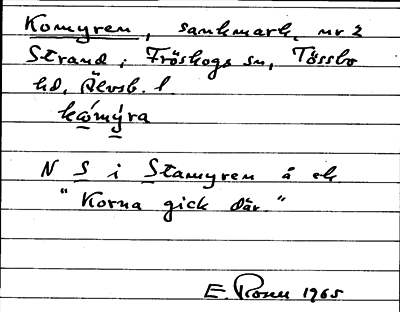 Komyren, sankmark, nr 2
Strand, Fröskogs sn, Tössbo
hd, Älvsb. l.
kọ́mỵ́ra
N S i Stamyren å ek
"Korna gick där."
E. Rosen 1965